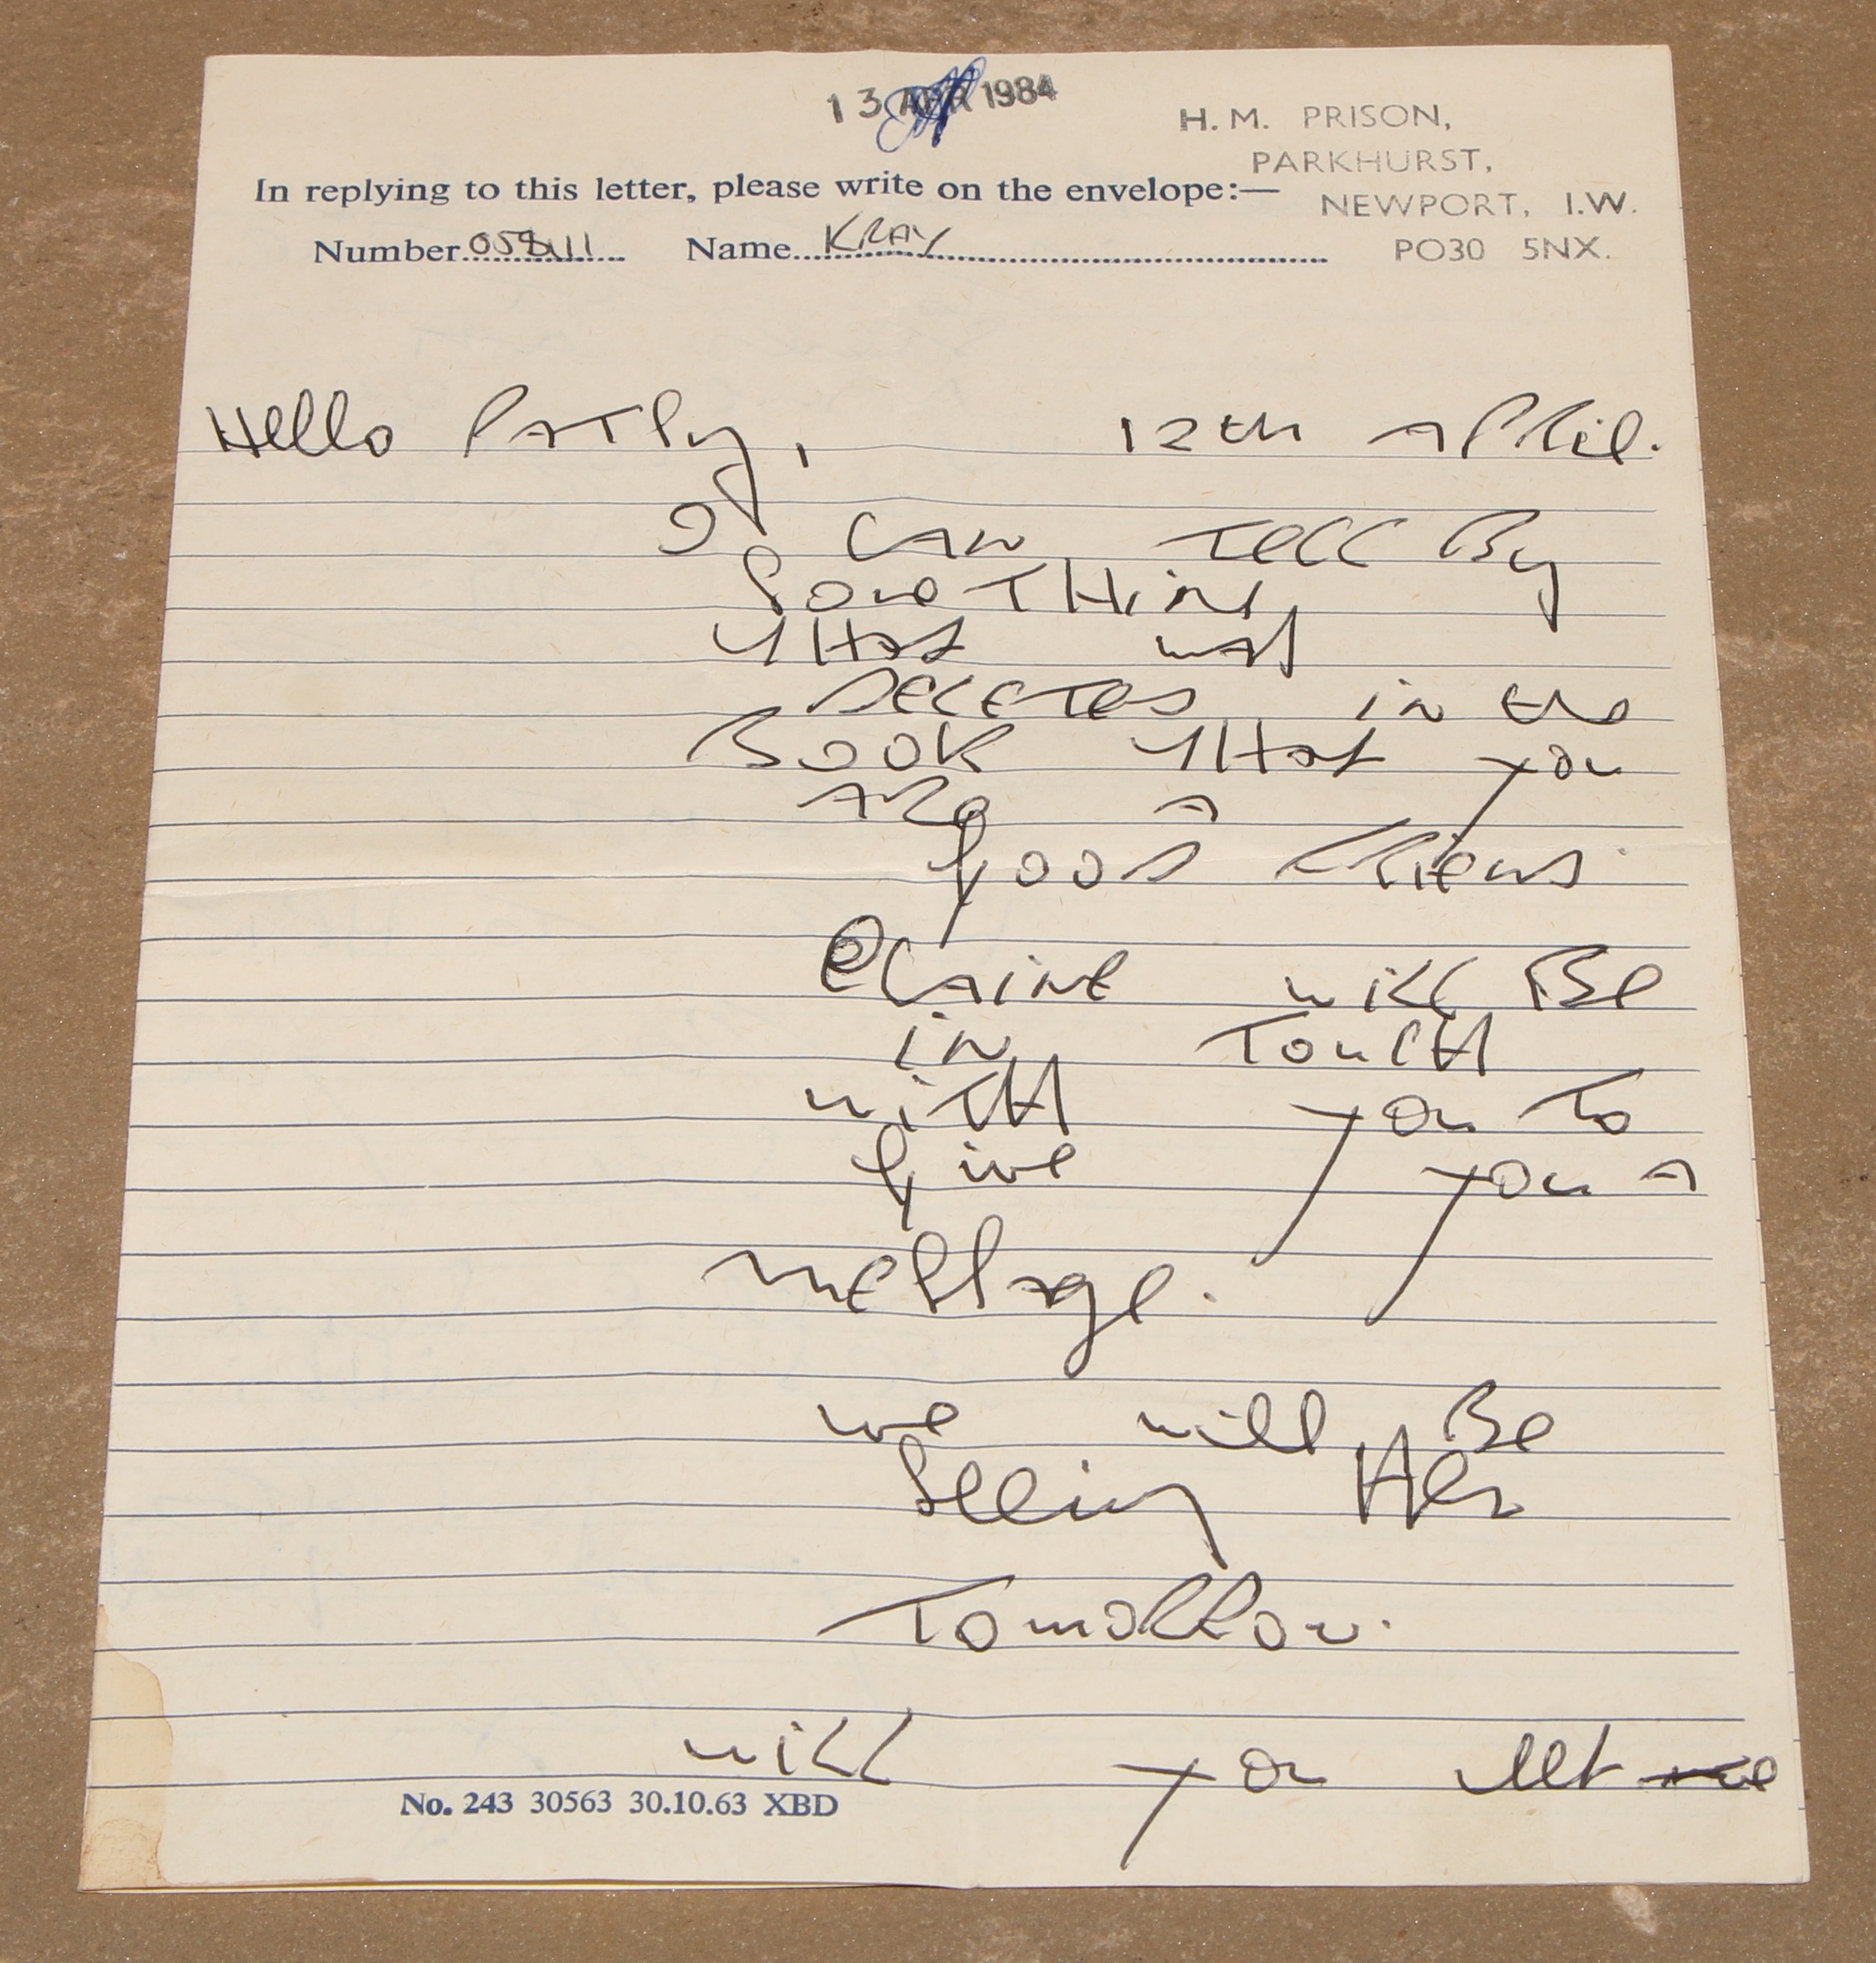 13 APR 1984
H. M. PRISON,
PARKHURST,
NEWPORT, I.W.
PO30 5NX.
In replying to this letter, please write on the envelope:—
Number Name KRAY
Hello Patsy, 12th April.
I can Tell By
SomeThing
That was
Deleted in the
Book That you
are a
good Friend.
Elaine will Be
in Touch
with you To
give you a
message.
we will Be
Seeing Her
Tomorrow.
will you let me
No. 243 30563 30.10.63 XBD